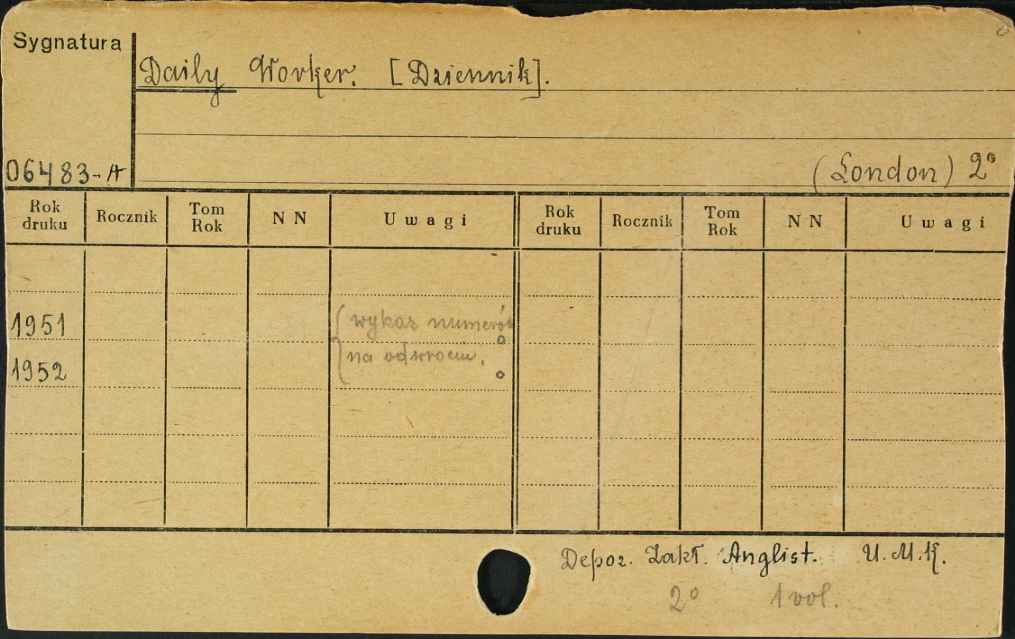 Sygnatura
Daily Worker. [Dziennik].
06483-A
(London) 2°
Rok druku Rocznik Tom Rok NN Uwagi Rok druku Rocznik Tom Rok NN Uwagi
1951 (wykaz numerów
1952 na odwrocie.
Depoz. Zakł. Anglist. U.M.K.
2° 1 vol.